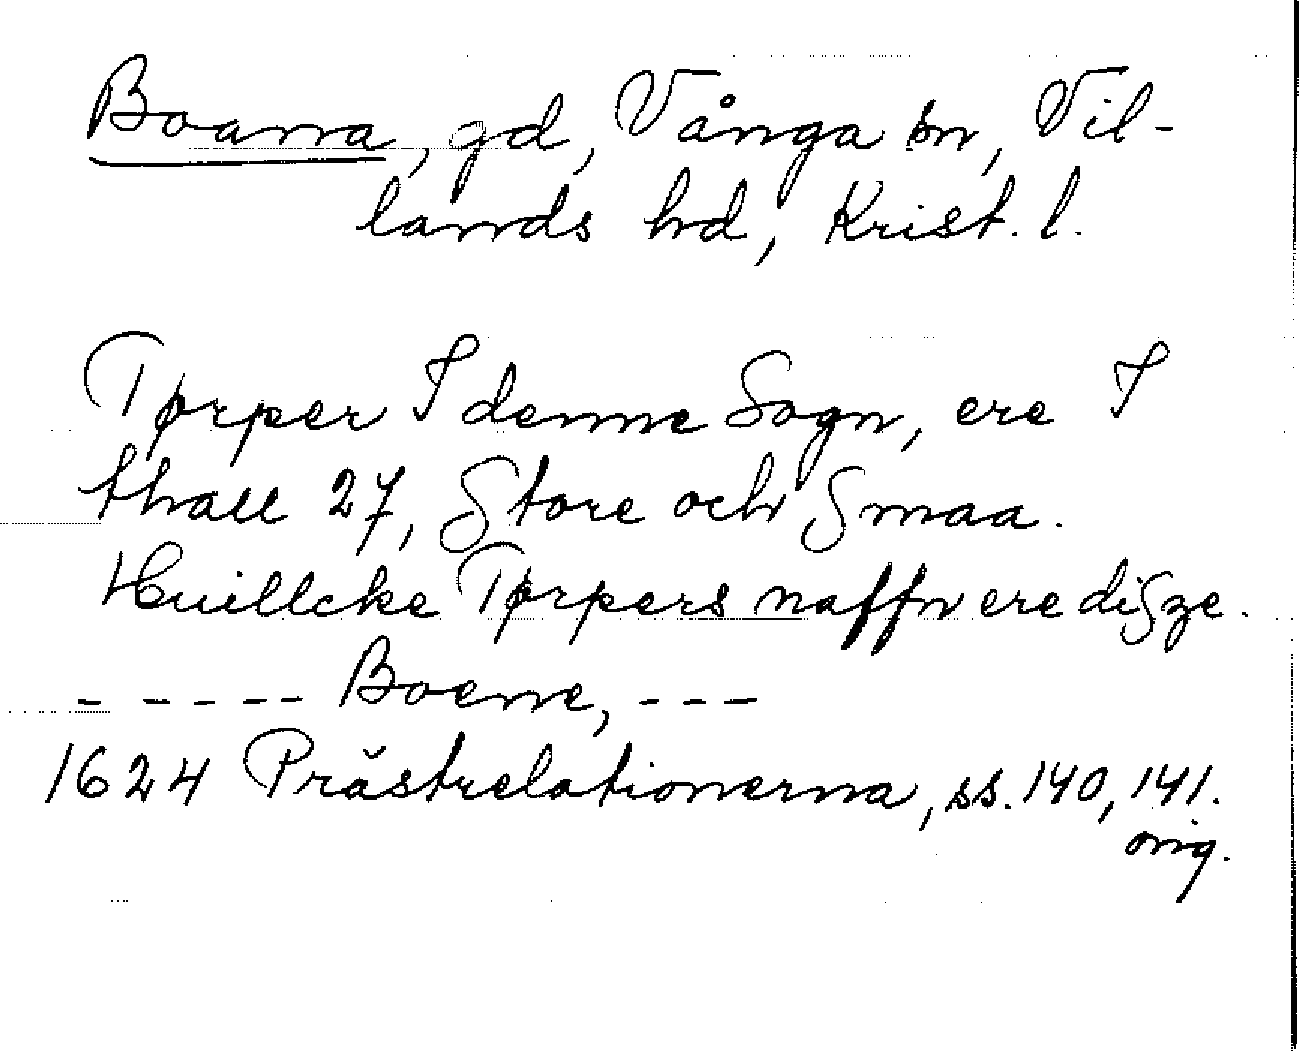 Boarna, gd, Vånga sn, Vil-
lands hd, Krist. l.
Tørper I denne Sogn, ere I
thall 27, Store och Smaa.
Huillcke Tørpers naffn ere disze.
- - - - - Boerne, - - -
1624 Prästrelationerna, ss. 140, 141.
orig.